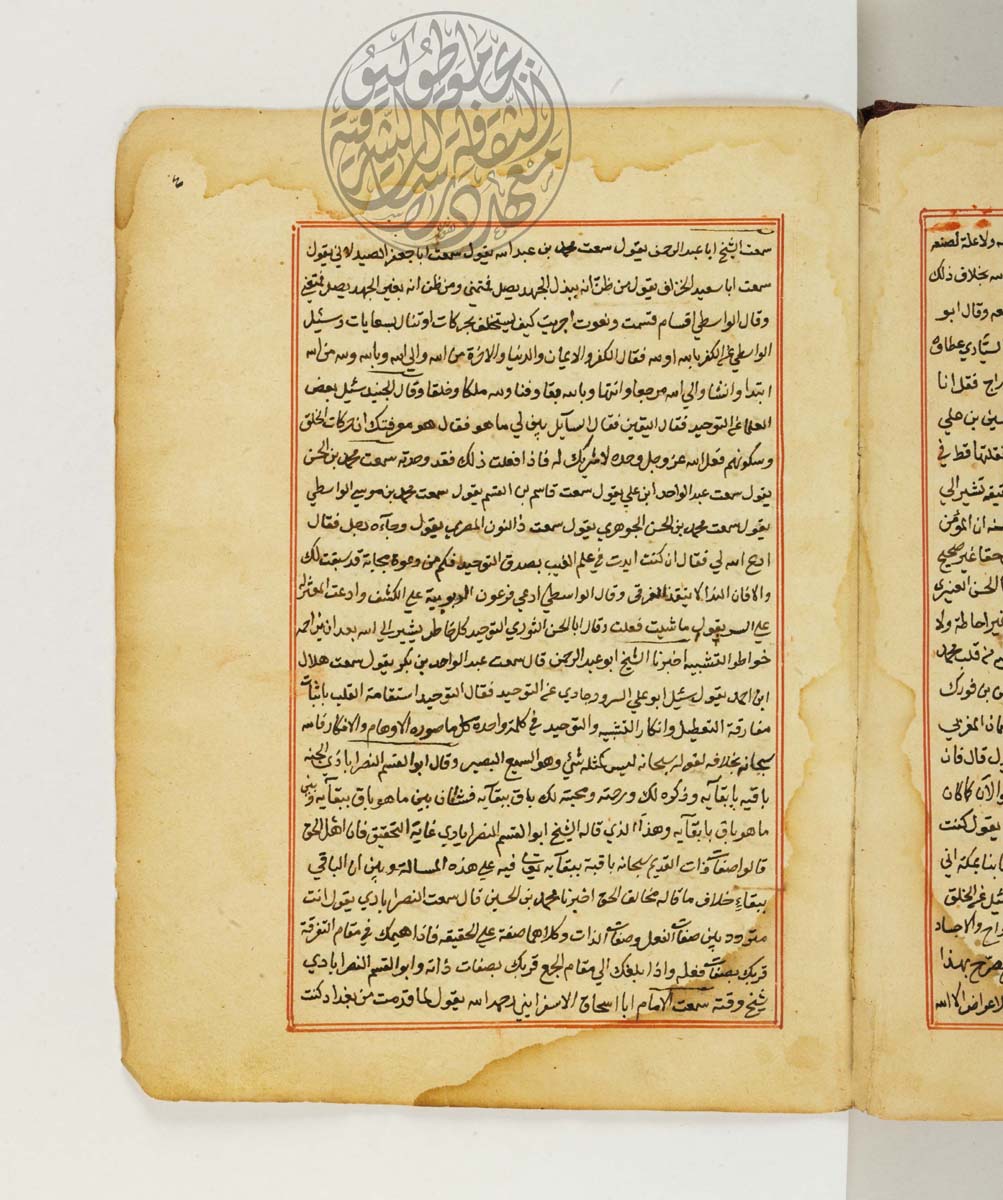 سمعت الشيخ ابا عبد الرحمن يقول سمعت محمد بن عبد الله يقول سمعت ابا جعفر الصيدلاني يقول
سمعت ابا سعيد الخزاز يقول من ظن انه ببذل الجهد يصل فمتمني ومن ظن انه بغير الجهد يصل فمتمني
وقال الواسطي اقسام قسمت ونعوت اجريت كيف يستجلب بحركات او تنال بسعايات وسئل
الواسطي عن الكفر بالله او لله فقال الكفر والايمان والدنيا والاخرة من الله والى الله وبالله ولله من الله
ابتدا وانشا والى الله مرجعا وانتها وبالله بقا وفنا ولله ملكا وخلقا وقال الجنيد سئيل بعض
العلما عن التوحيد فقال اليقين فقال السايل بين لي ما هو فقال هو معرفتك ان حركات الخلق
وسكونهم فعل الله عز وجل وحده لا شريك له فاذا فعلت ذلك فقد وحدته سمعت محمد بن الحسن
يقول سمعت عبد الواحد ابن علي يقول سمعت قاسم بن القسم يقول سمعت محمد بن موسى الواسطي
يقول سمعت محمد بن الحسن الجوهري يقول سمعت ذا النون المصري يقول وجآءه رجل فقال
ادع الله لي فقال ان كنت ايدت في علم الغيب بصدق التوحيد فكم من دعوة مجابة قد سبقت لك
والا فان الندا لا ينقذ الغرقى وقال الواسطي ادعى فرعون الربوبية على الكشف وادعت المعتزلة
على الستر يقول ما شيت فعلت وقال ابا الحسن النوري التوحيد كل خاطر يشير الى الله بعد ان لا تزاحمه
خواطر التشبيه اخبرنا الشيخ ابو عبد الرحمن قال سمعت عبد الواحد بن بكر يقول سمعت هلال
ابن احمد يقول سئيل ابو علي الرودباري عن التوحيد فقال التوحيد استقامة القلب باثبات
مفارقة التعطيل وانكار التشبيه والتوحيد في كلمة واحدة كل ما صوره الاوهام والافكار فالله
سبحانه بخلافه لقوله سبحانه ليس كمثله شئ وهو السميع البصير وقال ابو القسم النصراباذي الجنه
باقيه بابقآيه وذكره لك ورحمته ومحبته لك باق ببقآيه فشتان بين ما هو باق ببقآيه وبين
ما هو باق بابقآيه وهذا الذي قاله الشيخ ابو القسم النصرابادي غاية التحقيق فان اهل الحق
قالوا صفات ذات القديم سبحانه باقية ببقآيه تعالى فيه على هذه المسالة وبين ان الباقي
ببقاء خلاف ما قاله مخالف الحق اخبرنا محمد بن الحسين قال سمعت النصرابادي يقول انت
متردد بين صفات الفعل وصفات الذات وكلاهما صفة على الحقيقه فاذا هيمك في مقام التفرقة
قربك بصفات فعله واذا بلغك الى مقام الجمع قربك بصفات ذاته وابو القسم النصرابادي
شيخ وقته سمعت الامام ابا اسحاق الاسفرايني رحمه الله يقول لما قدمت من بغداد كنت